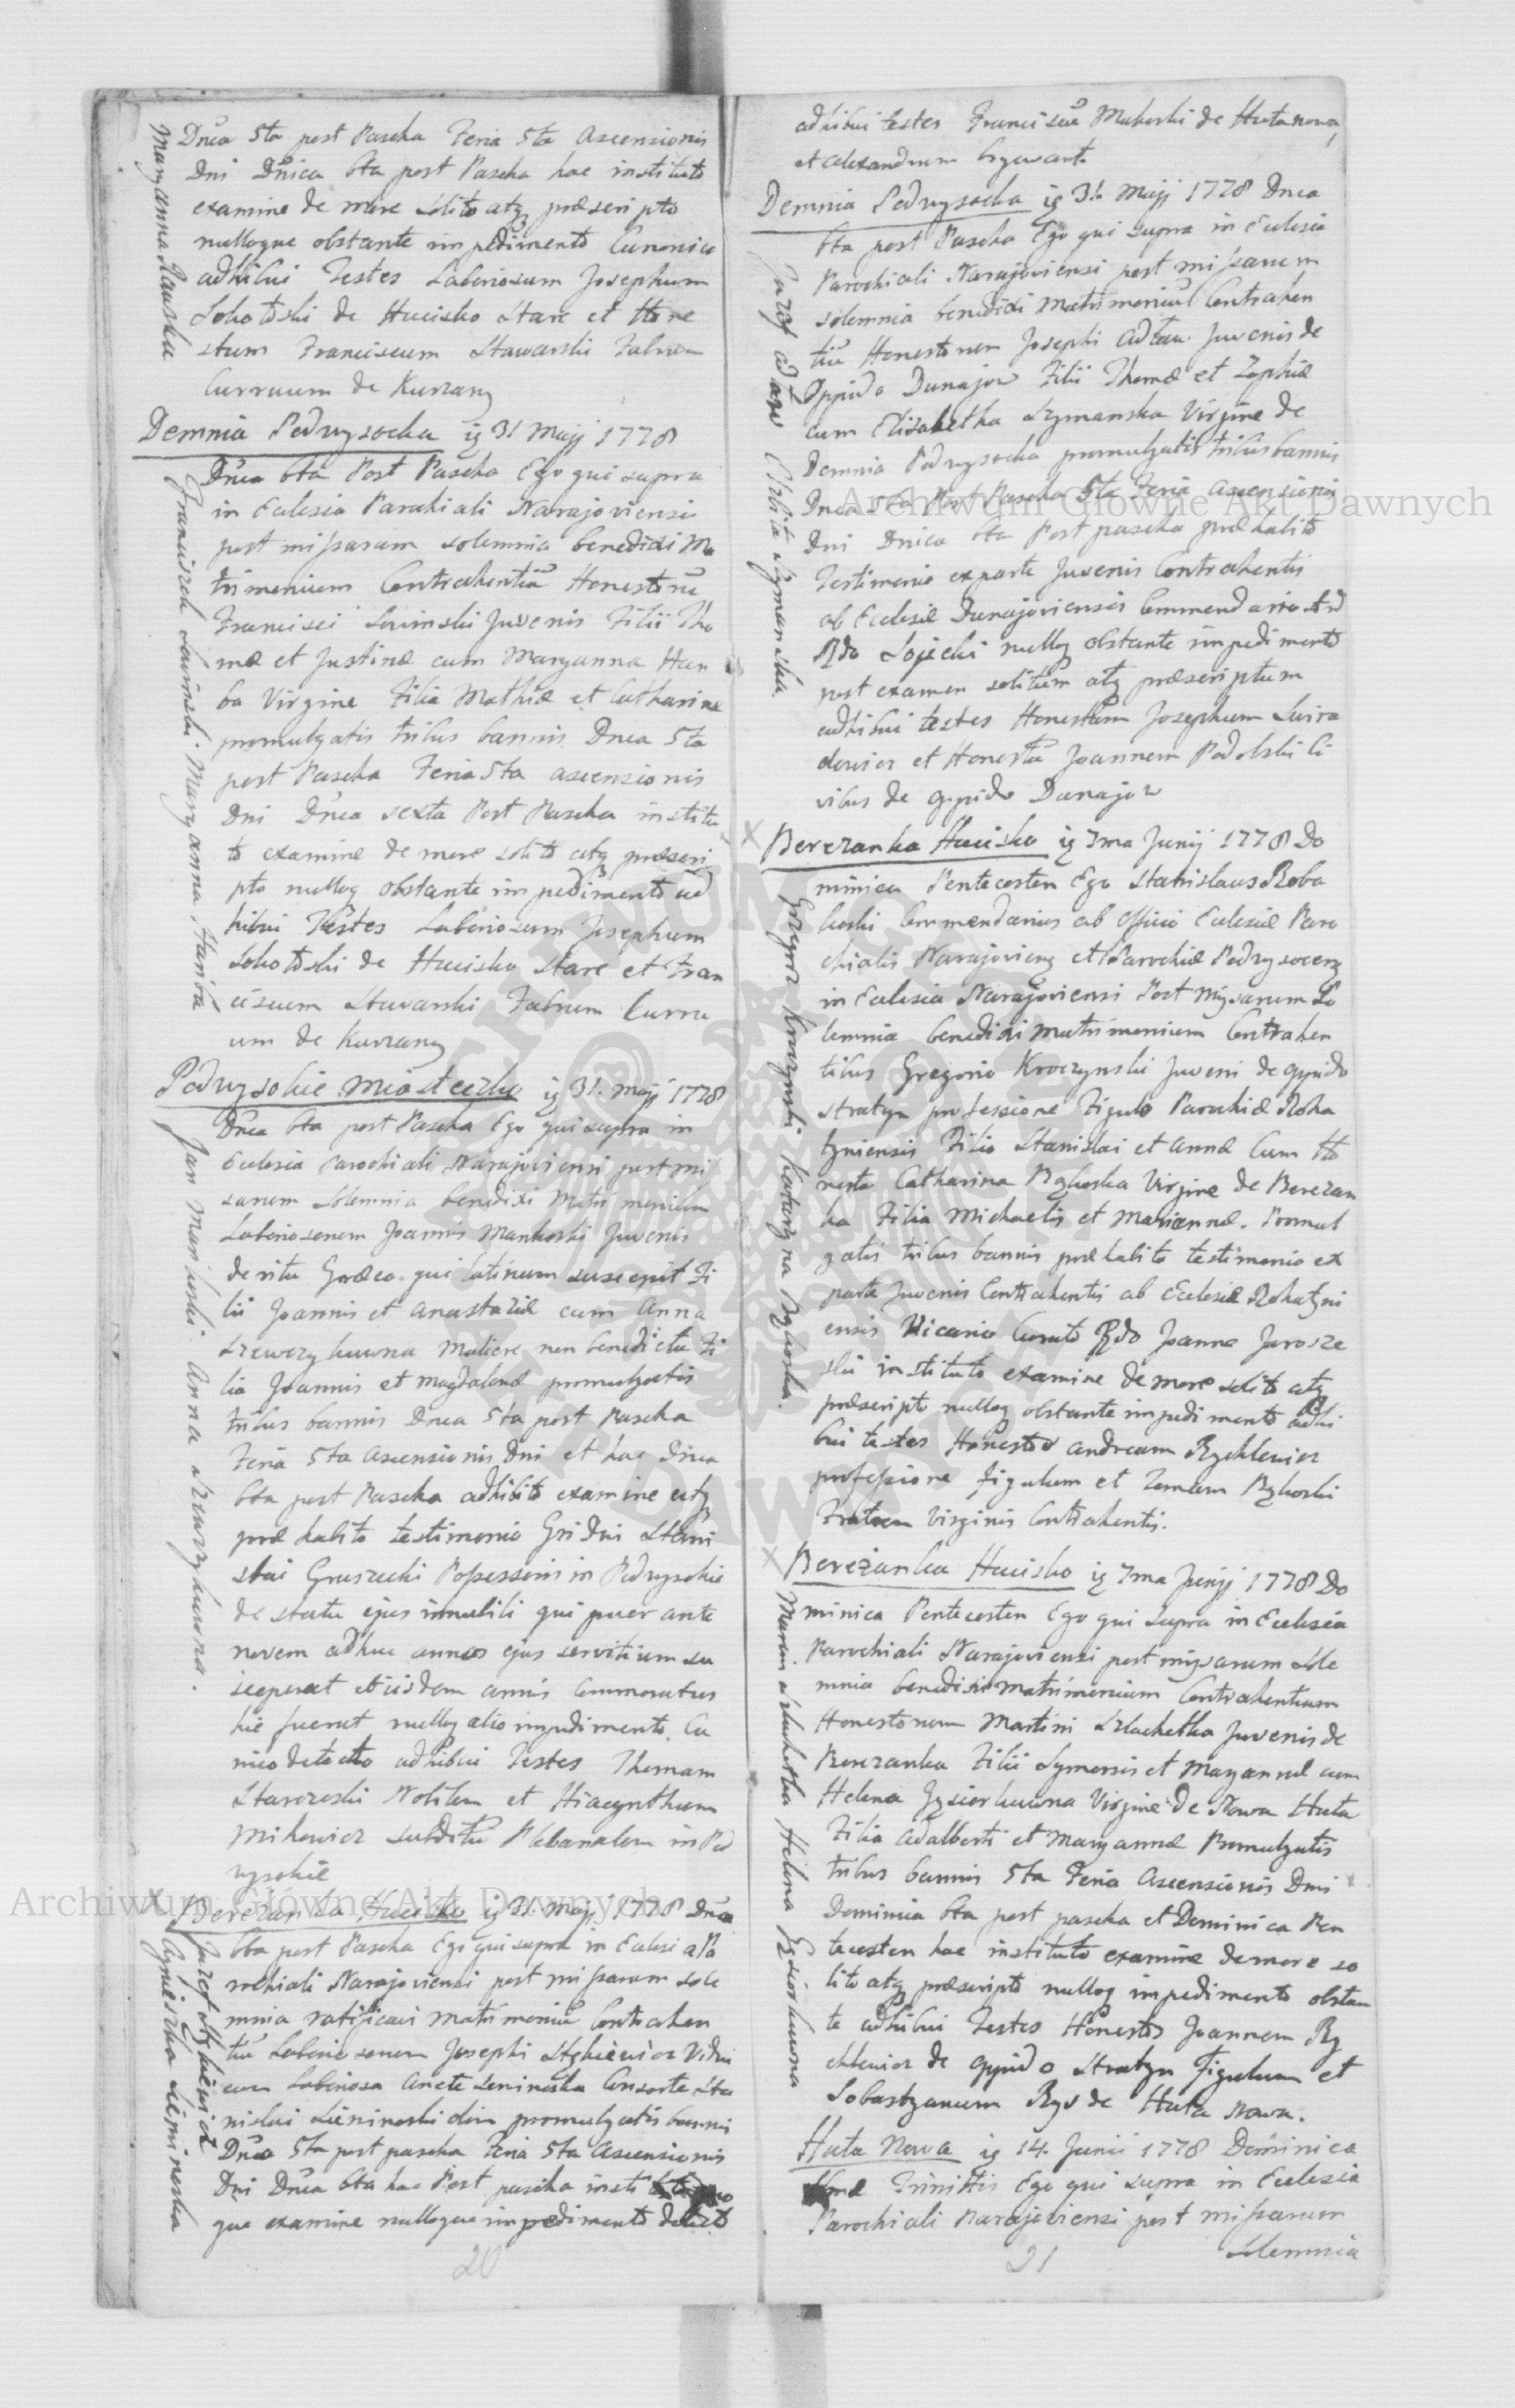 Dnica 5ta post Pascha Feria 5ta Ascensionis
Dni Dnica 6ta post Pascha hac instituto
examine de more solito atq præscripto
nulloque obstante impedimento Canonico
adhibui Testes Laboriosum Josephum
Sokolski de Hucisko Stare et Hone
stum Franciscum Stawarski Fabrum
Curruum de Kurzany
Maryanna
Demnia Podwysocka ig 31 Majj 1778
Dnica 6ta Post Pascha Ego qui supra
in Eclesia Parochiali Narajoviensi
post missarum solemnia benedixi Ma
trimonium Contrahentiũ Honestorũ
Francisci Juvenis Filii Tho
mæ et Justinæ cum Maryanna Han
ba Virgine Filia Mathiæ et Catharinæ
promulgatis tribus bannis Dnca 5ta
post Pascha Feria 5ta ascensionis
Dni Dnica sexta Post Pascha institu
to examine de more solito atq præscri
pto nulloq obstante impedimento ad
hibui Testes Laboriosum Josephum
Sokolski de Hucisko Stare et Fran
ciscum Stawarski Fabrum Curru
um de Kurzany
Franciszek Maryanna Hanba
Podwysokie Miasteczko ig 31. Majj 1778
Dnca 6ta post Pascha Ego qui supra in
Eclesia Parochiali Narajoviensi post mis
sarum Solemnia benedixi Matrimonium
Laboriosorum Joannis Mankoski Juvenis
de ritu Græco qui latinum suscepit Fi
lii Joannis et Anastaziæ cum Anna
Szewczykowna Muliere non benedicta Fi
lia Joannis et Magdalenæ promulgatis
tribus bannis Dnca 5ta post Pascha
Feria 5ta Ascensionis Dni et hac Dnca
6ta post Pascha adhibito examine atq
præhabito testimonio Gsi Dni Stani
slai Gruszecki Possessoris in Podwysokie
de statu ejus innubili qui puer ante
novem adhuc annos ejus servitium su
sceperat et iisdem annis Commoratus
hic fuerat nulloq alio impedimento Ca
nico detecto adhibui Testes Thomam
Starczeski Nobilem et Hiacynthum
Mikowicz subditũ Plebanalem in Pod
wysokie
Jan Mankoski Anna Szewczykowna.
X Berezanka Hucisko ig 31. Majj 1778 Dnca
6ta post Pascha Ego qui supra in Eclesia Pa
rochiali Narajoviensi post missarum sole
mnia ratificavi matrimoniũ Contrahen
tiũ Laboriosorum Josephi Vidui
cum Laboriosa Consorte Sta
nislai olim promulgatis bannis
Dnca 5ta post pascha Feria 5ta Ascensionis
Dni Dnca 6ta hac Post pascha insti
que examine nulloque impedimento detecto
Jozef Agnieszka
20
adhibui testes Franciscũ Makoski de Huta nowa
et Alexandrum
Demnia Podwysocka ig 31. Majj 1778 Dnca
6ta post Pascha Ego qui supra in Eclesia
Parochiali Narajoviensi post missarum
solemnia benedixi Matrimoniũ Contrahen
tiũ Honestorum Josephi Adtaw Juvenis de
Oppido Dunajow Filii Thomæ et Zophiæ
cum Elisabetha Szymanska Virgine de
Demnia Podwysocka promulgatis tribus bannis
Dnca 5ta Post Pascha 5ta Feria ascensionis
Dni Dnica 6ta Post pascha præhabito
Testimonio ex parte Juvenis Contrahentis
ab Eclesiæ Dunajoviensis Commendario
Rdo Sojecki nulloq obstante impedimento
post examen solitum atq præscriptum
adhibui testes Honestum Josephum Swira
dowicz et Honestũ Joannem Podolski Ci
vibus de oppido Dunajow
Jozef Adtaw Elzbieta Szymanska
X Berezanka Hucisko ig 7ma Junij 1778 Do
minica Pentecosten Ego Stanislaus Roba
koski Commendarius ab officio Eclesiæ Paro
chialis Narajovieng et Parochiæ Podwysoceng
in Eclesia Narajoviensi Post Missarum So
lemnia benedixi Matrimonium Contrahen
tibus Gregorio Kroczynski Juveni de oppido
Stratyn professione Figulo Parochiæ Roha
tyniensis Filio Stanislai et Annæ Cum Ho
nesta Catharina Rykoska Virgine de Berezan
ka Filia Michaelis et Mariannæ. Promul
gatis tribus bannis præhabito testimonio ex
parte Juvenis Contrahentis ab Eclesiæ Rohatyni
ensis Vicario Curato Rdo Joanne Jarosze
ski instituto examine de more solito atq
præscripto nulloq obstante impedimento adhi
bui testes Honestos Andream Rychlewicz
professione figulum et Rykoski
Fratrem Virginis Contrahentis.
Grzegorz Kroczynski Katarzyna Rykoska.
X Bereżanka Hucisko ig 7ma Junji 1778 Do
minica Pentecosten Ego qui supra in Eclesia
Parochiali Narajoviensi post missarum Sole
mnia benedixi matrimonium Contrahentium
Honestorum Martini Szlachetka Juvenis de
Berezanka Filii Symonis et Maryannæ cum
Helena Gąsiorkowna Virgine de Nowa Huta
Filia Adalberti et Maryannæ Promulgatis
tribus bannis 5ta Feria Ascensionis Dni
Dominica 6ta post pascha et Dominica Pen
tecosten hac instituto examine de more so
lito atq præscripto nulloq impedimento obstan
te adhibui Testes Honestos Joannem Ry
chlewicz de oppido Stratyn Figulum et
Sobastyanum Rys de Huta Nowa.
Marcin Szlachetka Helena Gąsiorkowna
Huta Nowa ig 14. Junii 1778 Dominica
Trinittis Ego qui supra in Eclesia
Parochiali Narajoviensi post missarum
solemnia
21
Archiwum Główne Akt Dawnych
Archiwum Główne Akt Dawnych